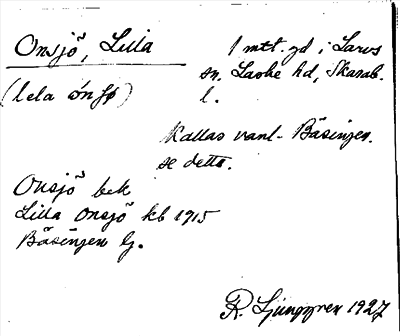 Onsjö, Lilla
1 mtt. gd i Larvs
sn. Laske hd, Skarab.
l.
(lela ónsø)
kallas vanl. Bäsingen.
se detta.
Onsjö bek
Lilla Onsjö kb 1915
Bäsingen lj.
R. Ljunggren 1927